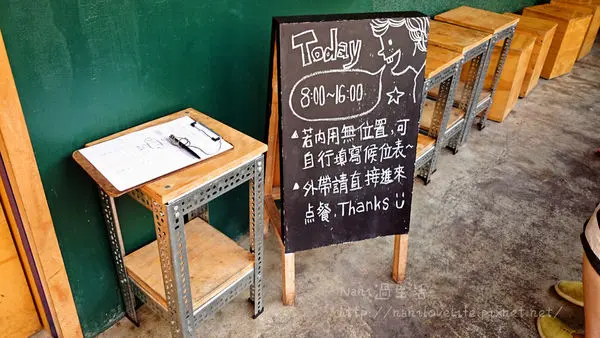 Today
8:00~16:00
▲若內用無位置,可
自行填寫候位表~
▲外帶請直接進來
點餐,Thanks
Nani過生活
http://nanilovelife.pixnet.net/